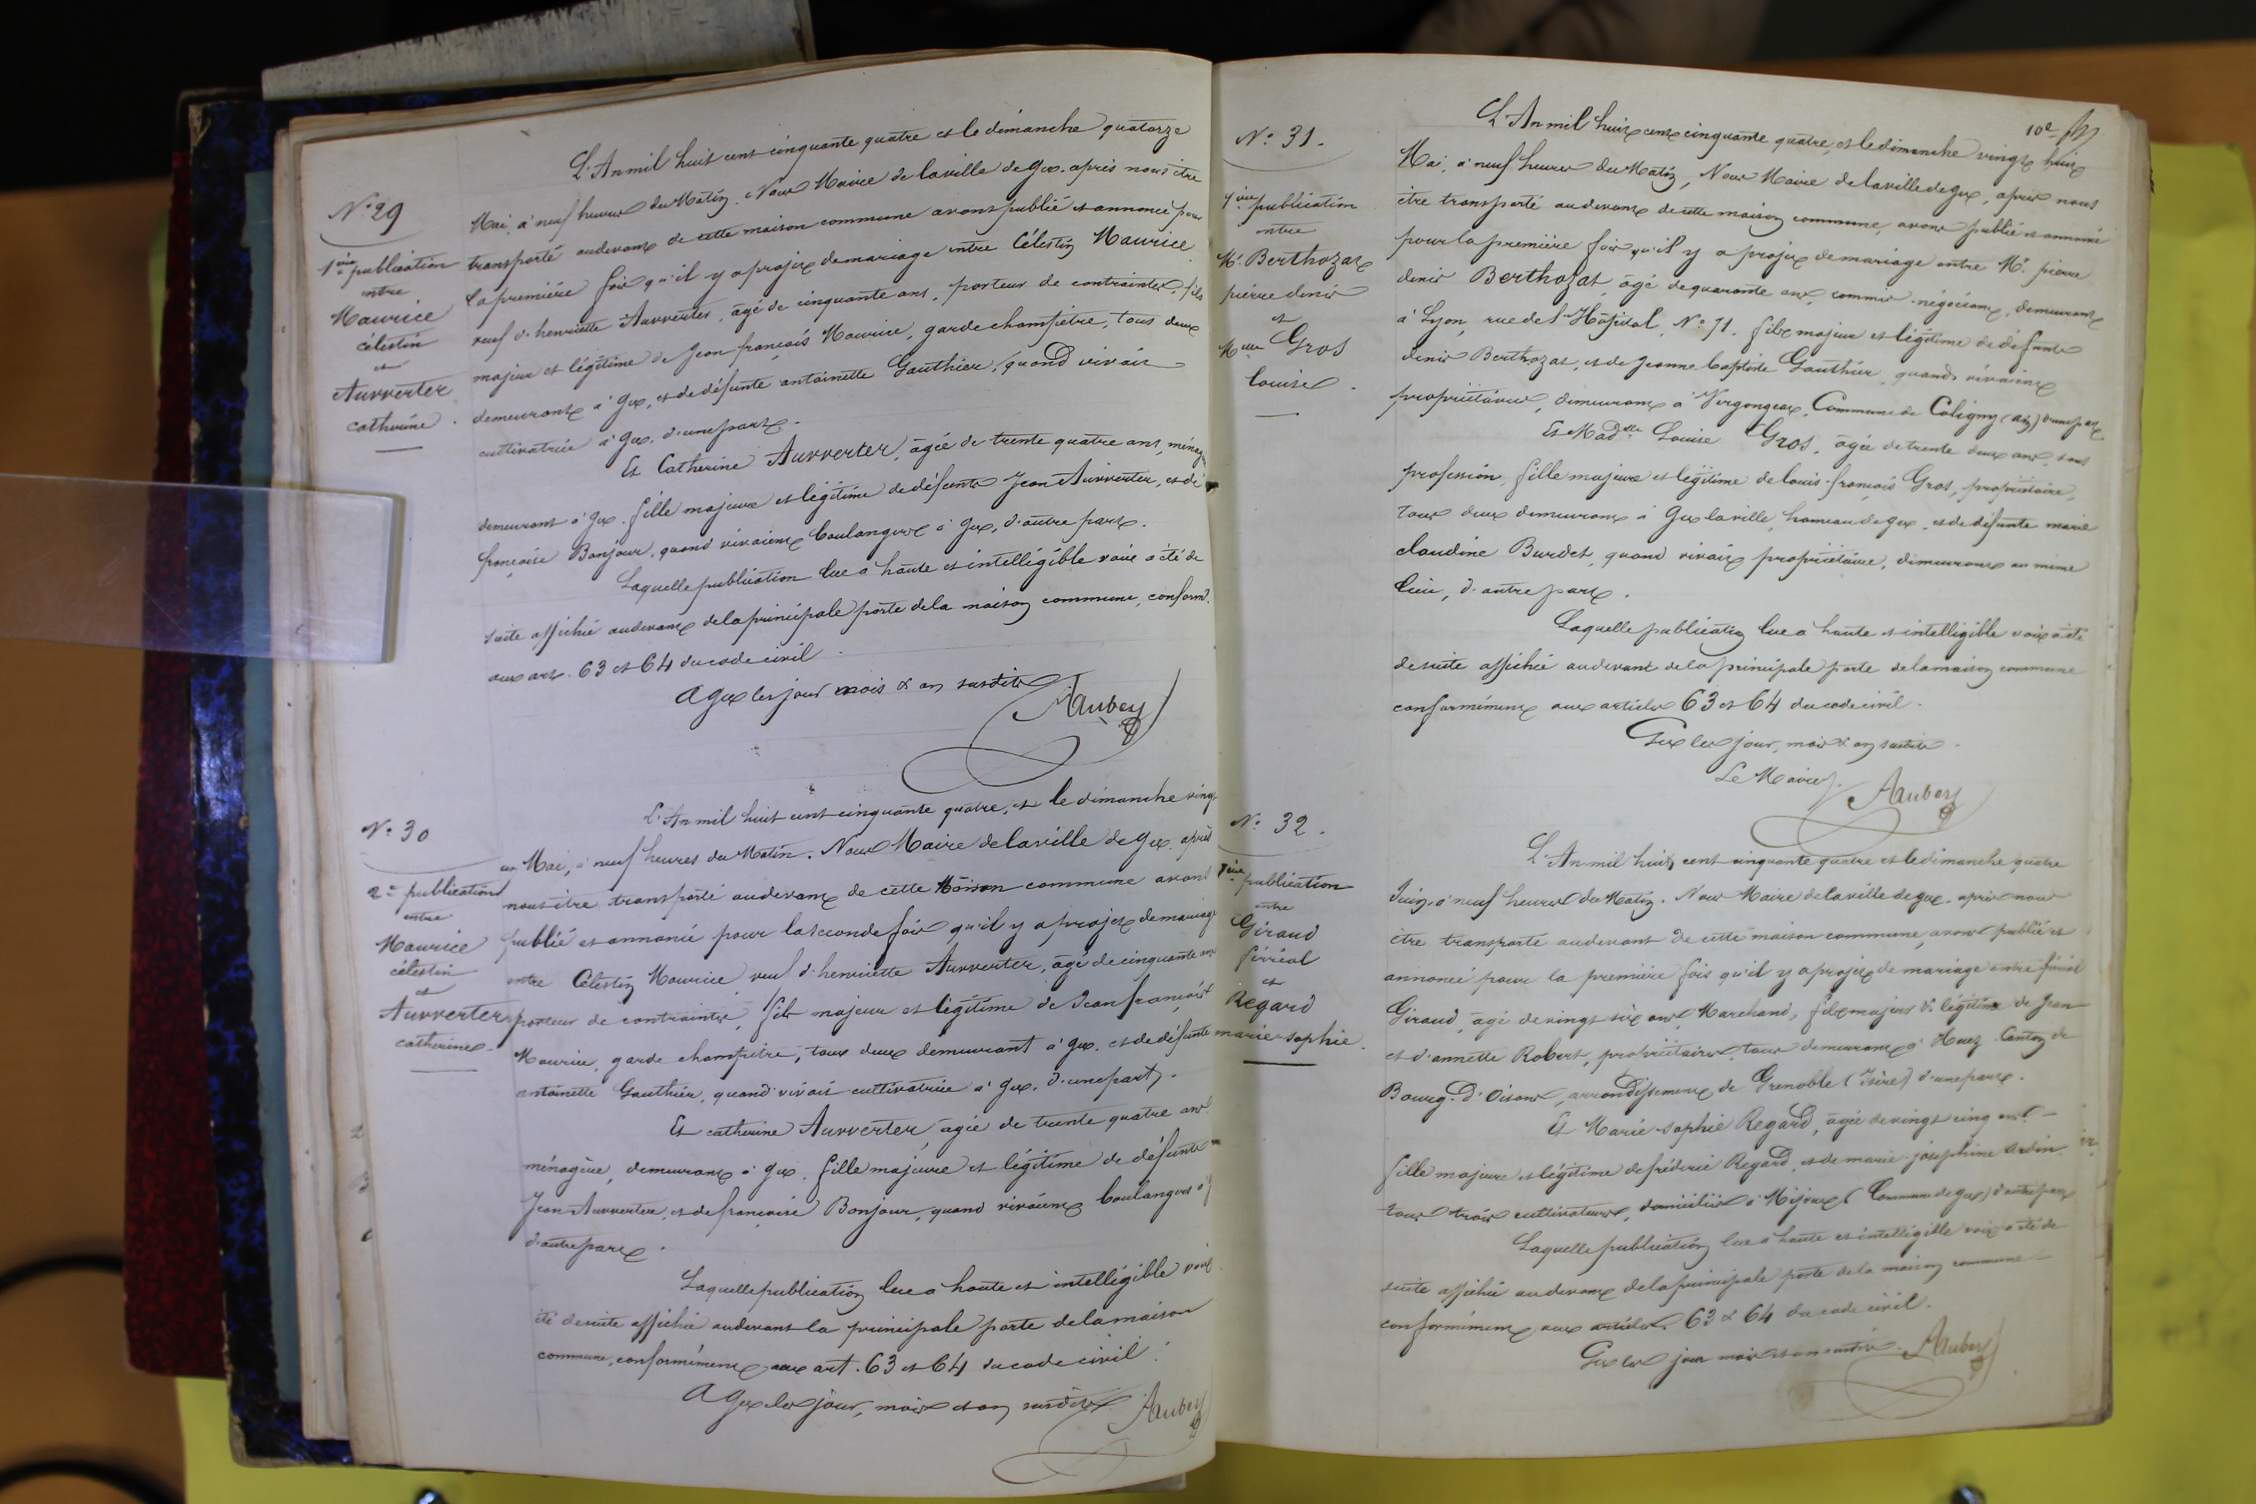 N.º 29
1ère publication
entre
Maurice
célestin
et
Aurverter
catherine.
L'An mil huit cent cinquante quatre et le dimanche quatorze
Mai, à neuf heures du Matin. Nous Maire de la ville de Gex. après nous être
transporté audevant de cette maison commune avons publié et annoncé pour
la première fois qu'il y a projet de mariage entre Célestin Maurice
veuf d'henriette Aurverter, âgé de cinquante ans, porteur de contraintes, fils
majeur et légitime de Jean françois Maurice, garde champêtre, tous deux
demeurant à Gex, et de défunte antoinette Gauthier, quand vivait
cultivatrice à Gex, d'une part.
Et Catherine Aurverter, âgée de trente quatre ans, ménag
demeurant à Gex. fille majeure et légitime de défunts Jean Aurverter, et de
françoise Bonjour, quand vivaient boulangers à Gex, d'autre part.
Laquelle publication lue a haute et intelligible voix a été de
suite affichée audevant de la principale porte de la maison commune, conform.
aux art. 63 et 64 du code civil.
A Gex les jour mois & an susdits
Aauber
N.º 30
2e publication
entre
Maurice
célestin
et
Aurverter
catherine.
L'An mil huit cent cinquante quatre, et le dimanche vingt
un Mai, à neuf heures du Matin. Nous Maire de la ville de Gex. après
nous être transporté audevant de cette Maison commune avons
publié et annoncé pour la seconde fois qu'il y a projet de mariage
entre Célestin Maurice veuf d'henriette Aurverter, âgé de cinquante ans
porteur de contraintes, fils majeur et légitime de Jean françois
Maurice, garde champêtre, tous deux demeurant à Gex. et de défunte
antoinette Gauthier, quand vivait cultivatrice à Gex. d'une part.
Et catherine Aurverter, âgée de trente quatre ans
ménagère, demeurant à Gex. fille majeure et légitime de défunts
Jean Aurverter, et de françoise Bonjour, quand vivaient boulangers à
d'autre part.
Laquelle publication lue a haute et intelligible voix
été de suite affichée audevant la principale porte de la maison
commune, conformément aux art. 63 et 64 du code civil.
A Gex les jour, mois et an susdits
Aauber
10e
N.º 31.
1ère publication
entre
Mr. Berthozat
pierre denis
et
Melle Gros
louise.
L'An mil huit cent cinquante quatre, et le dimanche vingt huit
Mai, à neuf heures du Matin, Nous Maire de la ville de Gex, après nous
être transporté audevant de cette maison commune, avons publié et annoncé
pour la première fois qu'il y a projet de mariage entre Mr. pierre
denis Berthozat, âgé de quarante ans, commis-négociant, demeurant
à Lyon, rue de l'Hôpital, N.º 71. fils majeur et légitime de défunts
denis Berthozat, et de Jeanne baptiste Gauthier, quand vivaient
propriétaires, demeurant à Vergongeat, Commune de Coligny (ain) d'une part
Et Madelle Louise Gros, âgée de trente deux ans, sans
profession, fille majeure et légitime de louis-françois Gros, propriétaire,
tous deux demeurant à Gex la ville, hameau de gex, et de défunte marie
claudine Burdet, quand vivait propriétaire, demeurant au même
lieu, d'autre part.
Laquelle publication lue a haute et intelligible voix a été
de suite affichée audevant de la principale porte de la maison commune
conformément aux articles 63 et 64 du code civil.
Gex les jour, mois & an susdits.
Le Maire.
Aauber
N.º 32.
1ère publication
entre
Giraud
férréol
et
Regard
marie-sophie.
L'An mil huit cent cinquante quatre et le dimanche quatre
Juin, à neuf heures du Matin. Nous Maire de la ville de gex. après nous
être transporté audevant de cette maison commune, avons publié et
annoncé pour la première fois qu'il y a projet de mariage entre férréol
Giraud, âgé de vingt six ans, Marchand, fils majeur & légitime de Jean
et d'annette Robert, propriétaires, tous demeurant à Huez Canton de
Bourg-d'Oisans, arrondissement de Grenoble (Isère) d'une part.
Et Marie-sophie Regard, âgée de vingt cinq ans
fille majeure et légitime de fréderic Regard, et de marie-josephine
tous trois cultivateurs, domiciliés à Mijoux (Commune de gex) d'autre part
Laquelle publication lue a haute et intelligible voix a été de
suite affichée audevant de la principale porte de la maison commune
conformément aux articles 63 & 64 du code civil.
Gex les jour mois et an susdits.
Aauber